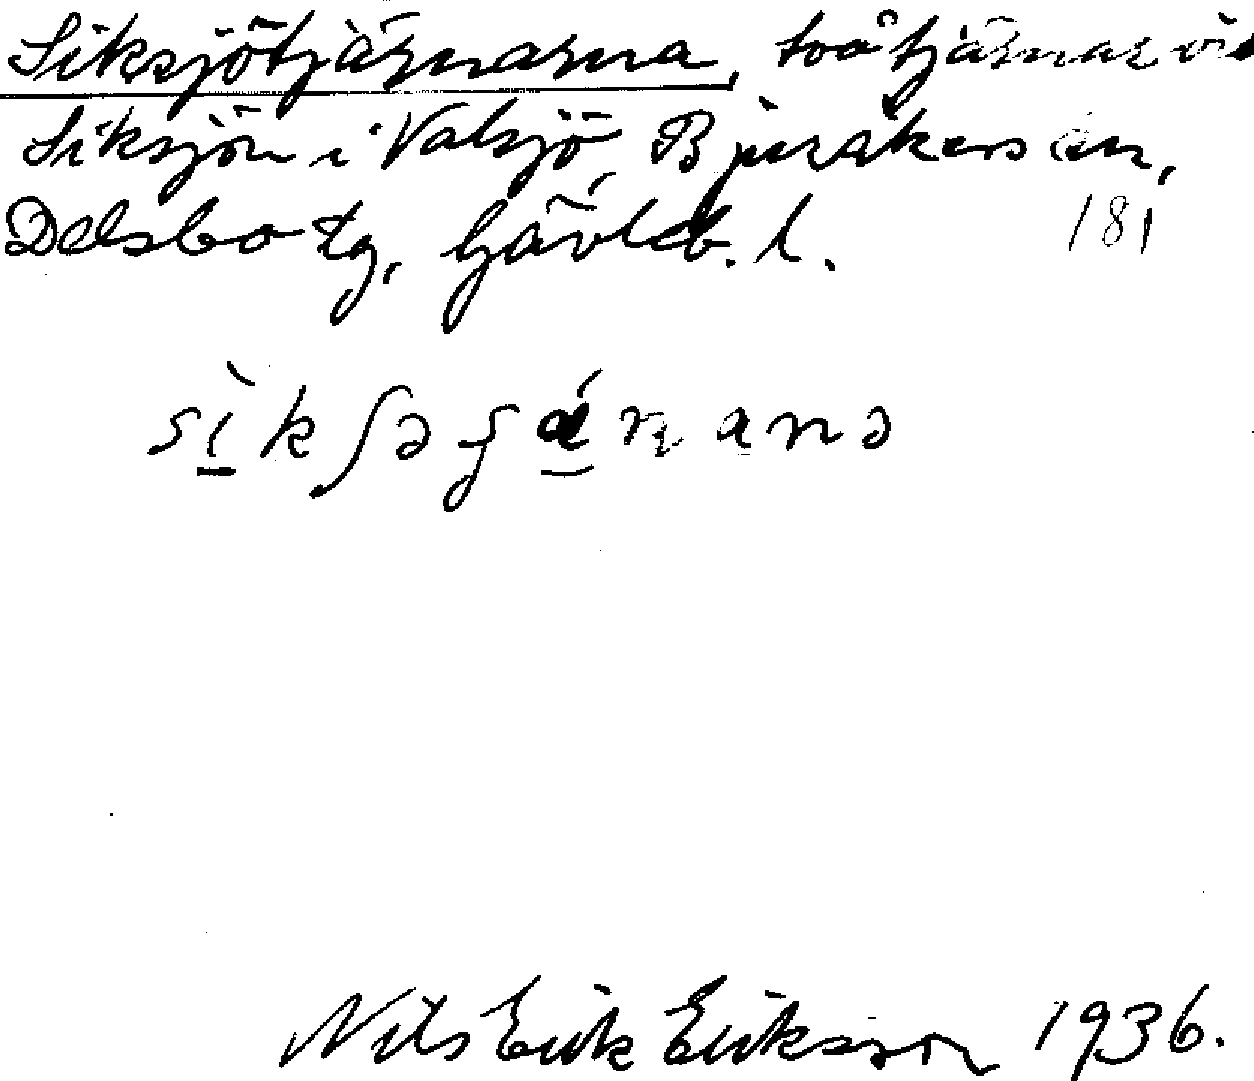 Siksjötjärnarna, två tjärnar vid
Siksjön i Valsjö, Bjuråkers sn,
Delsbo tg, Gävleb. l.
181
Nils Erik Eriksson 1936.